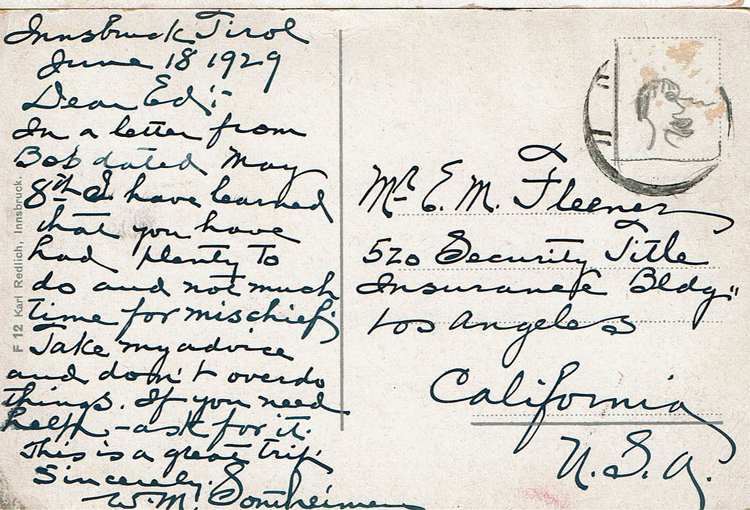 Innsbruck Tirol
June 18 1929
Dear Ed:-
In a letter from
Bob dated May
8th I have learned
that you have
had plenty to
do and not much
time for mischief.
Take my advice
and don't overdo
things. If you need
help - ask for it.
This is a great trip.
Sincerely.
W.M. Sontheimer
F 12 Karl Redlich, Innsbruck.
Mr E. M. Fleener
520 Security Title
Insurance Bldg.
Los Angeles
California
U.S.A.